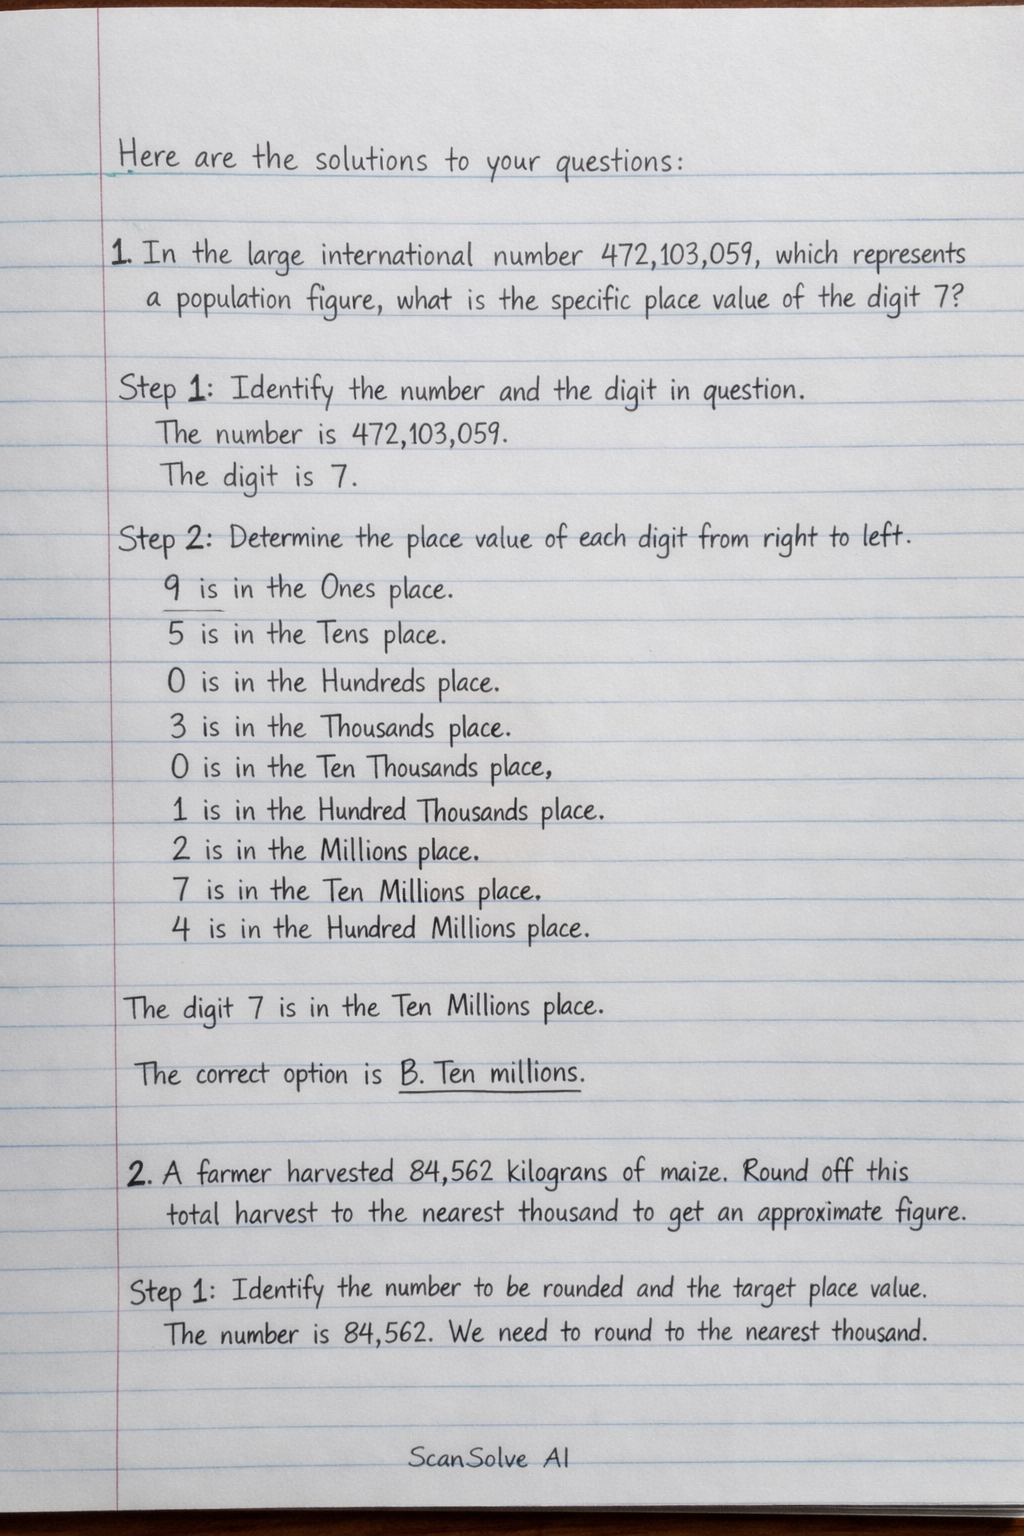 Here are the solutions to your questions:
1. In the large international number 472,103,059, which represents
a population figure, what is the specific place value of the digit 7?
Step 1: Identify the number and the digit in question.
The number is 472,103,059.
The digit is 7.
Step 2: Determine the place value of each digit from right to left.
9 is in the Ones place.
5 is in the Tens place.
0 is in the Hundreds place.
3 is in the Thousands place.
0 is in the Ten Thousands place,
1 is in the Hundred Thousands place.
2 is in the Millions place.
7 is in the Ten Millions place.
4 is in the Hundred Millions place.
The digit 7 is in the Ten Millions place.
The correct option is B. Ten millions.
2. A farmer harvested 84,562 kilograns of maize. Round off this
total harvest to the nearest thousand to get an approximate figure.
Step 1: Identify the number to be rounded and the target place value.
The number is 84,562. We need to round to the nearest thousand.
ScanSolve AI